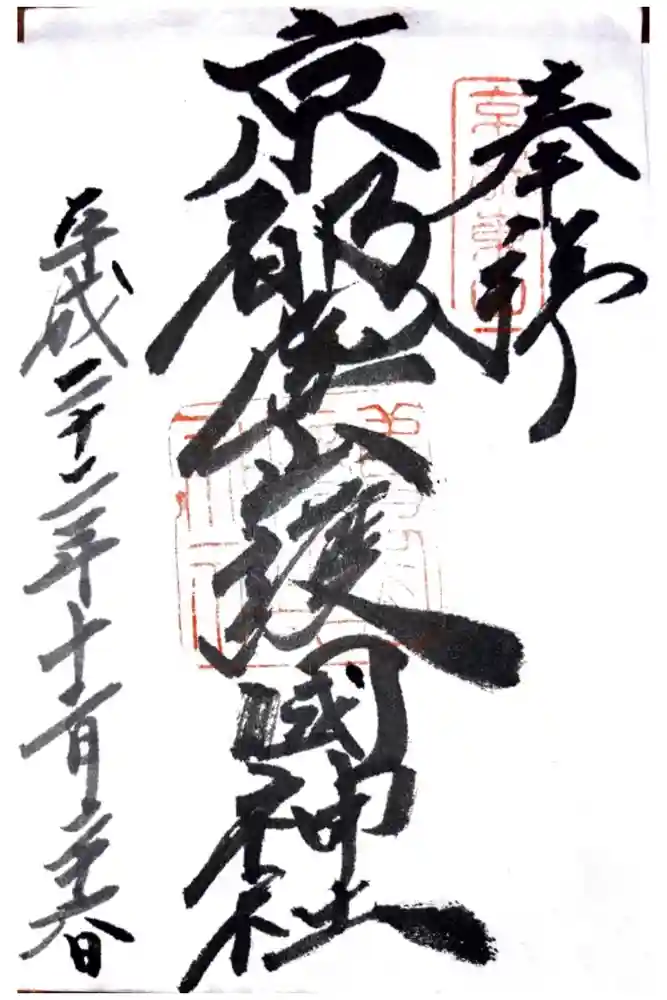 奉拝
京都霊山護國神社
平成二十二年十一月二十六日